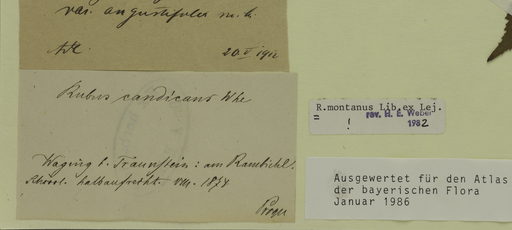 var. angustifolia m. h.
20 V 1911
Rubus candicans Whe
Waging b. Traunstein: am Rambichl.
Schössl. halbaufrecht. VIII. 1874
Progel
R.montanus Lib.ex Lej.
= ! rev. H. E. Weber
1982
Ausgewertet für den Atlas
der bayerischen Flora
Januar 1986